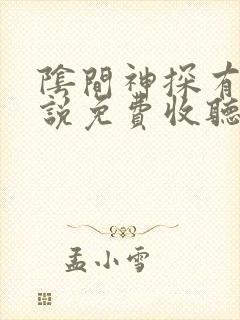 陰間神探有
說免費收聽
孟小雪